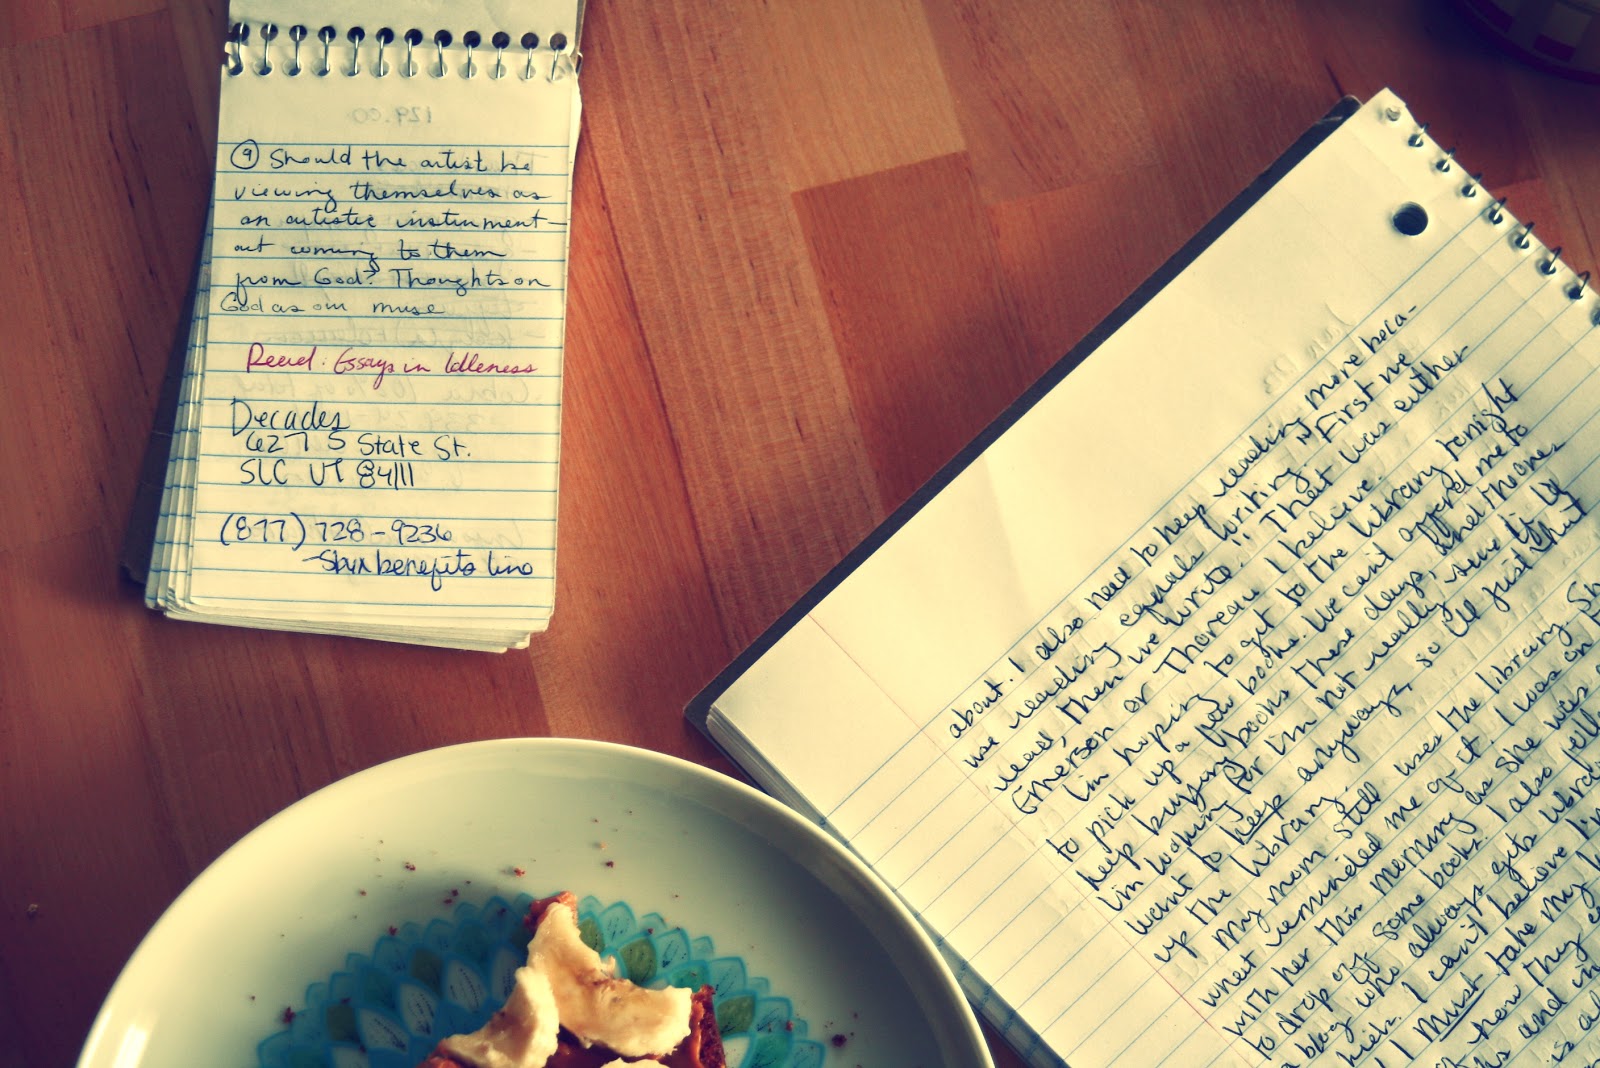 129.00
9 Should the artist be
viewing themselves as
an artistic instrument—
art coming to them
from God? Thoughts on
God as our muse
Read: Essays in Idleness
Decades
627 S State St.
SLC UT 84111
(877) 728-9236
benefits line
about. I also need to keep reading more beca-
use reading equals writing. "First we
read, then we write." That was either
Emerson or Thoreau I believe.
I'm hoping to get to the library tonight
to pick up a few books. We can't afford me to
keep buying books these days, and the ones
I'm looking for I'm not really sure I'd
want to keep anyways, so I'll just
up the library.
My mom still uses the library. She
what reminded me of it. I was on
with her this morning as she was
to drop off some books. I also
a blog who always gets
kids. I can't believe
I must take my
how they
and
is